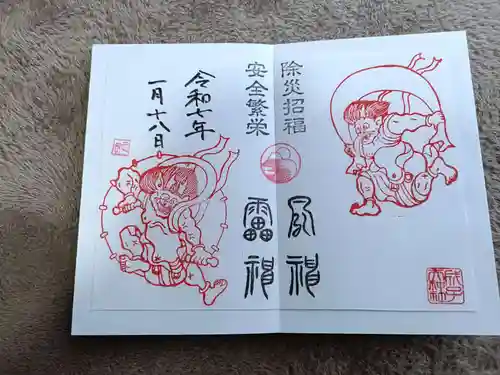 除災招福
安全繁栄
風神
雷神
令和七年
一月十八日